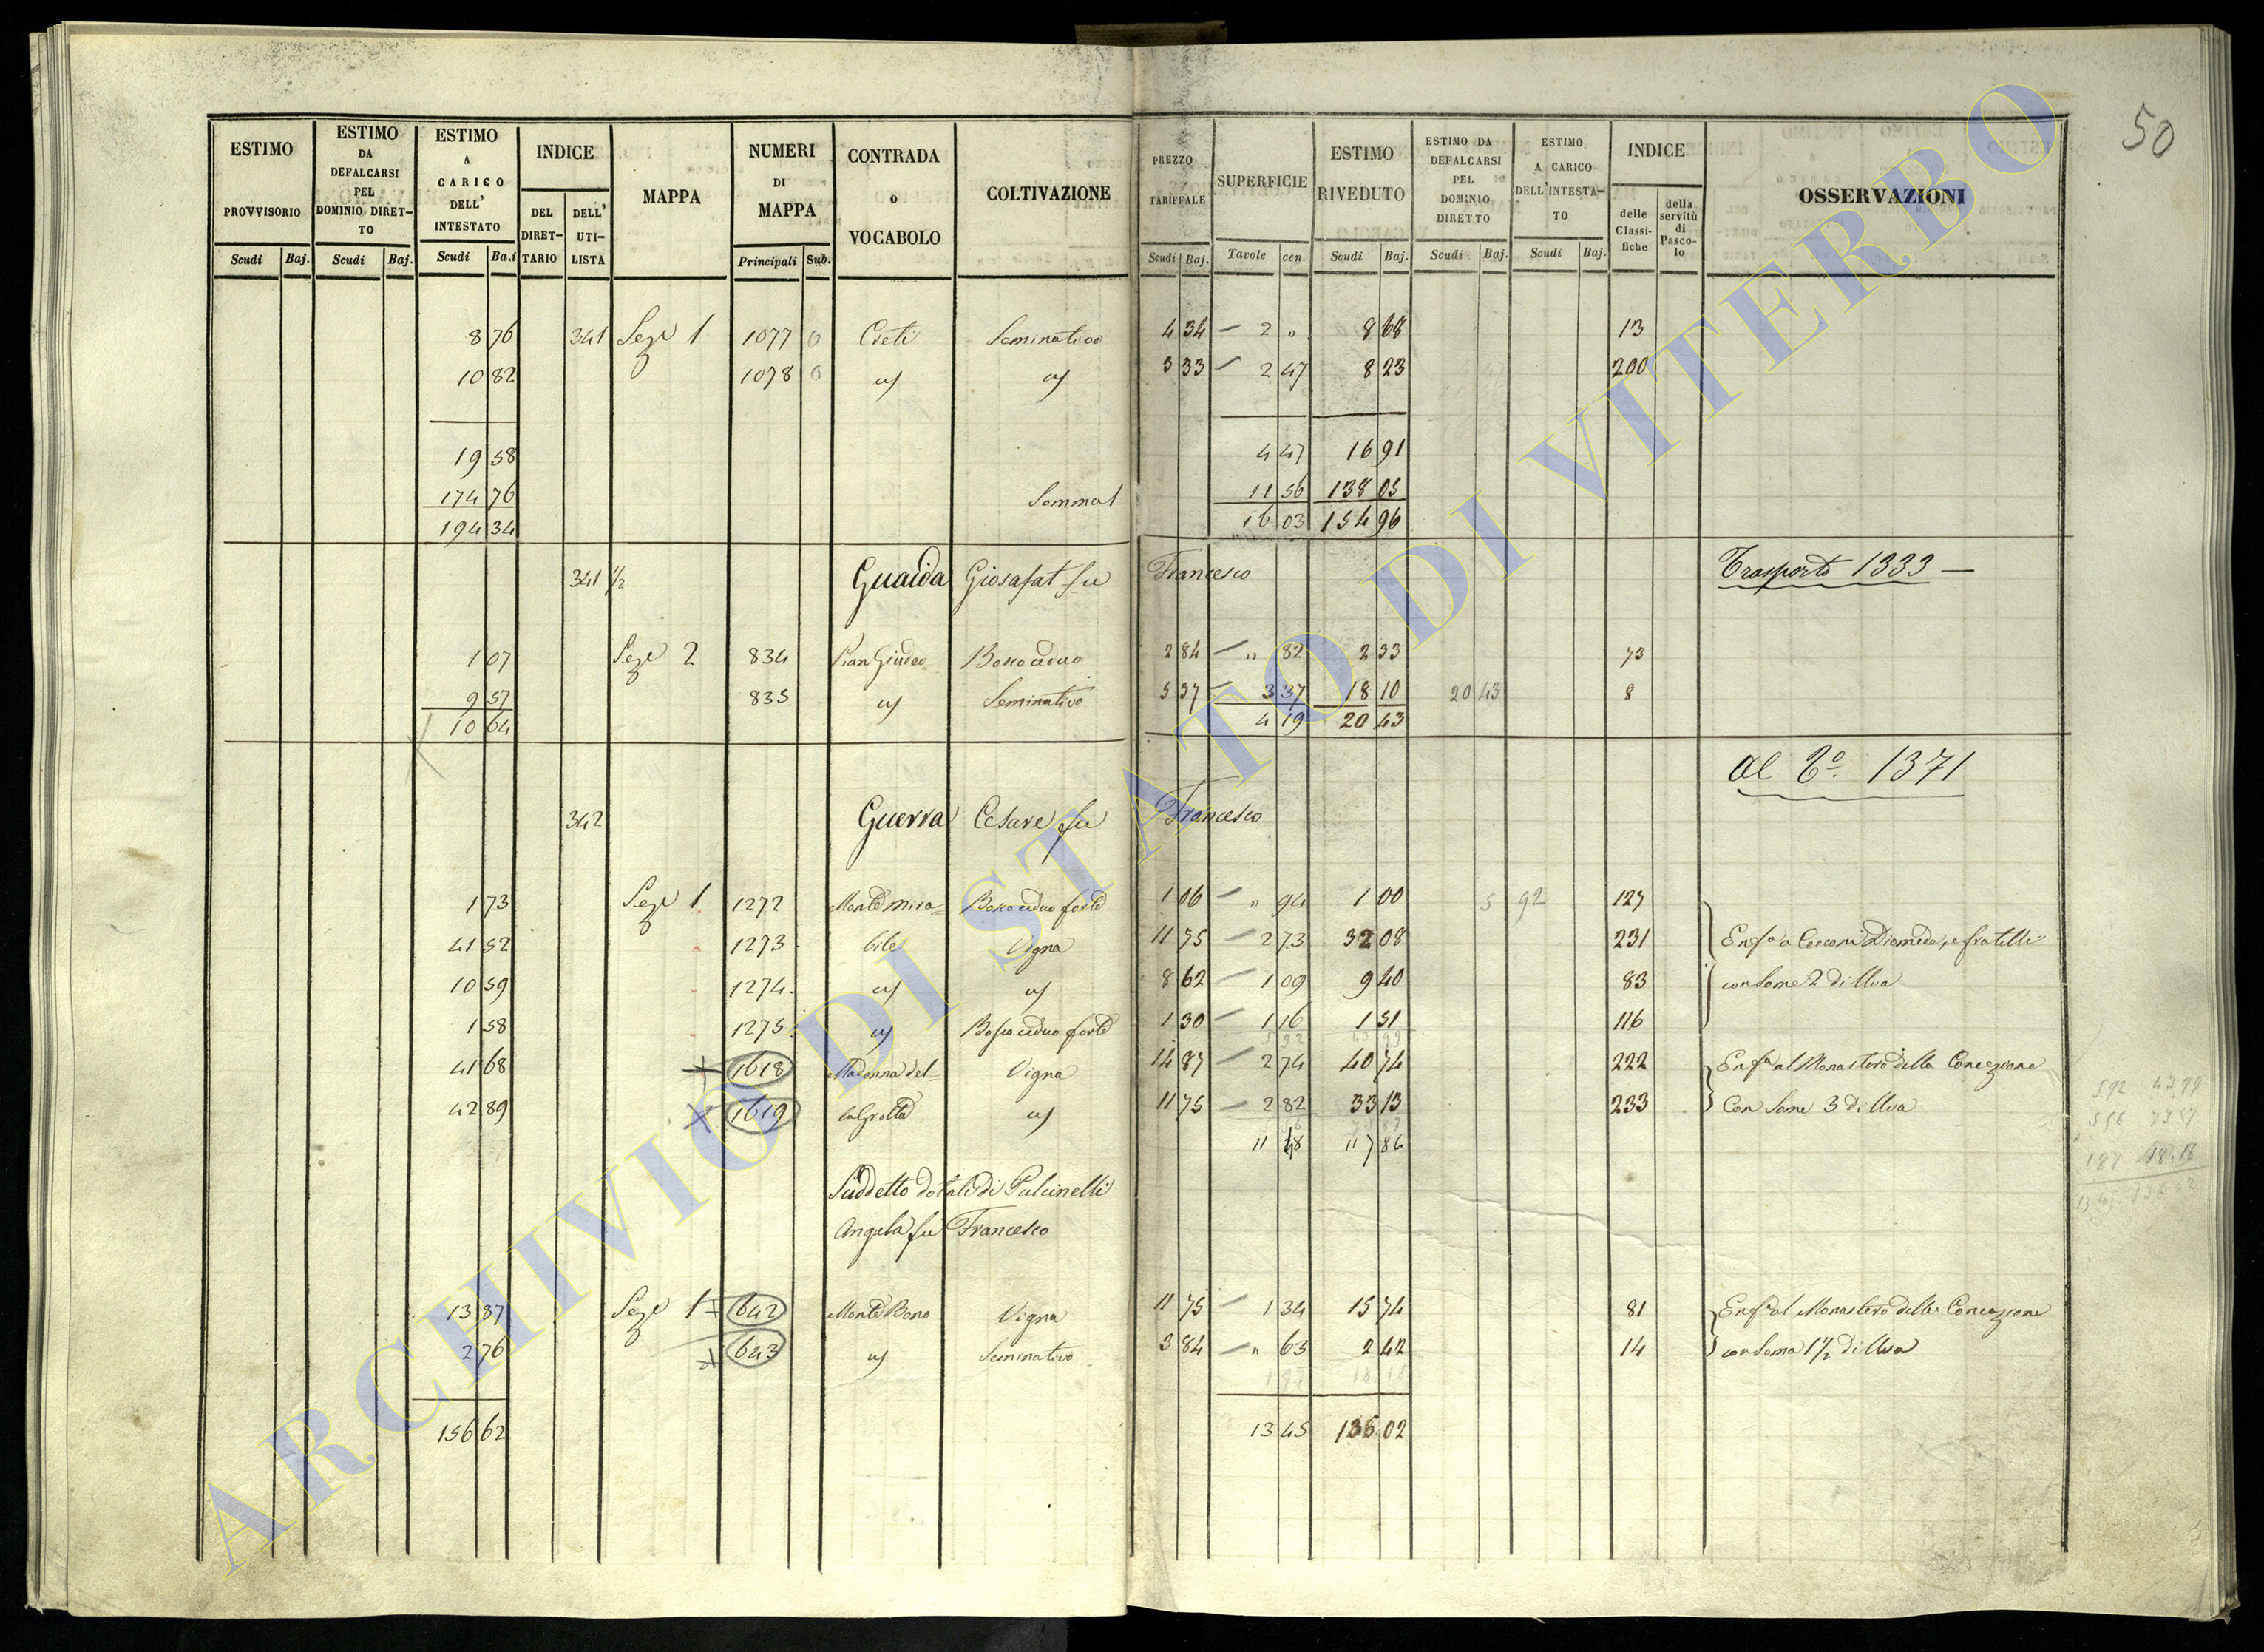 50
ESTIMO PROVVISORIO Scudi Baj.
ESTIMO DA DEFALCARSI PEL DOMINIO DIRET-TO Scudi Baj.
ESTIMO A CARICO DELL' INTESTATO Scudi Ba.i
INDICE DEL DIRET-TARIO DELL' UTI-LISTA
MAPPA
NUMERI DI MAPPA Principali Sub.
CONTRADA o VOCABOLO
COLTIVAZIONE
PREZZO TARIFFALE Scudi Baj.
SUPERFICIE Tavole cen.
ESTIMO RIVEDUTO Scudi Baj.
ESTIMO DA DEFALCARSI PEL DOMINIO DIRETTO Scudi Baj.
ESTIMO A CARICO DELL'INTESTA-TO Scudi Baj.
INDICE delle Classi-fiche della servitù di Pasco-lo
OSSERVAZIONI
8 76 341 Seze 1 1077 0 Creti Seminativo 4 34 – 2 " 8 68 13
10 82 1078 0 3 33 – 2 47 8 23 200
19 58 4 47 16 91
174 76 Somma 11 56 138 05
194 34 16 03 154 96
341 1/2 Guaida Giosafat fu Francesco Trasporto 1333 —
1 07 Seze 2 834 Pian Giudeo Bosco ceduo 2 84 – " 82 2 33 73
9 57 835 Seminativo 5 37 – 3 37 18 10 20 43 8
10 64 4 19 20 43
Al To. 1371
342 Guerra Cesare fu Francesco
1 73 Seze 1 1272 Monte mira= Bosco ceduo forte 1 06 – " 94 1 00 5 92 127
41 52 1273 bile Vigna 11 75 – 2 73 32 08 231 Enfa a Cecconi Diomede, e fratelli
10 59 1274 8 62 – 1 09 9 40 83 con Some 2 di Uva
1 58 1275 Bosco ceduo forte 1 30 – 1 16 1 51 116
41 68 1618 Madonna del= Vigna 14 87 – 2 74 40 74 222 Enfa al Monastero della Concezione
42 89 1619 la Grotta 11 75 – 2 82 33 13 233 Con Some 3 di Uva
11 48 117 86
Suddetto dotale di Pulcinelli
Angela fu Francesco
13 87 Seze 1 642 Monte Bono Vigna 11 75 – 1 34 15 74 81 Enfa al Monastero della Concezione
2 76 643 Seminativo 3 84 – " 63 2 42 14 con Soma 1 1/2 di Uva
156 62 13 45 136 02
ARCHIVIO DI STATO DI VITERBO